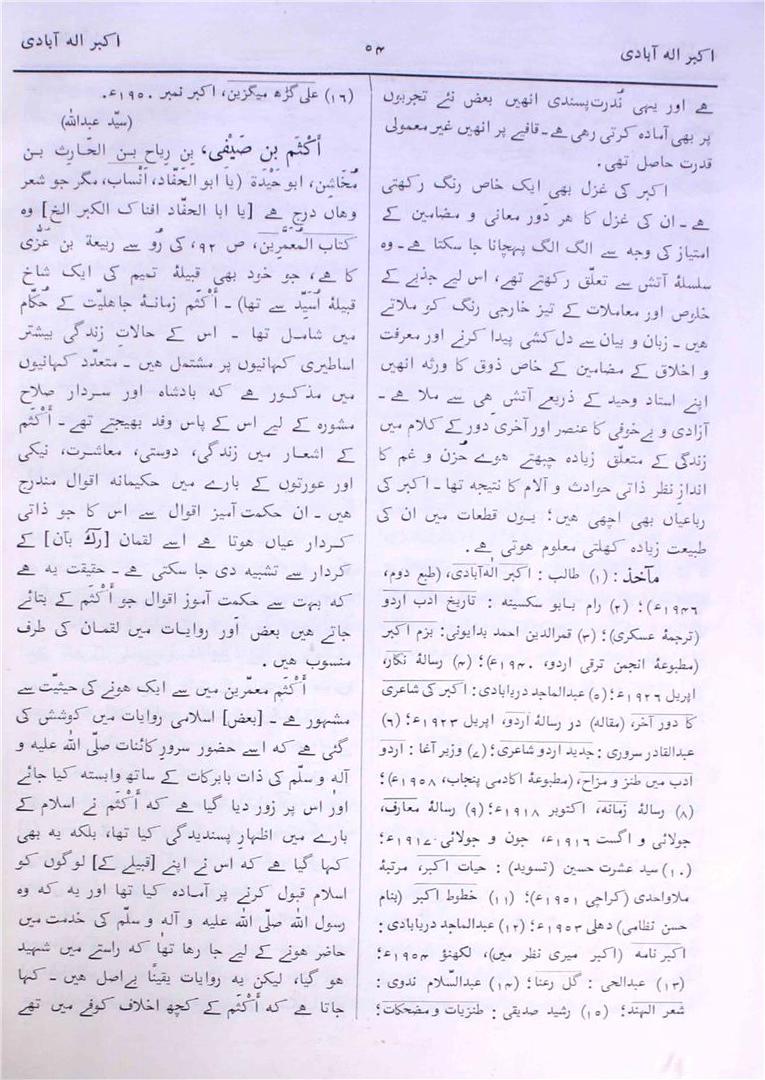 اکبر الہ آبادی
۵۴
اکبر الہ آبادی
ہے اور یہی نُدرت پسندی انھیں بعض نئے تجربوں
پر بھی آمادہ کرتی رہی ہے۔ قافیے پر انھیں غیر معمولی
قدرت حاصل تھی۔
اکبر کی غزل بھی ایک خاص رنگ رکھتی
ہے۔ ان کی غزل کا ہر دَور معانی و مضامین کے
امتیاز کی وجہ سے الگ الگ پہچانا جا سکتا ہے۔ وہ
سلسلۂ آتش سے تعلّق رکھتے تھے، اس لیے جذبے کے
خلوص اور معاملات کے تیز خارجی رنگ کو ملاتے
ہیں۔ زبان و بیان سے دل کشی پیدا کرنے اور معرفت
و اخلاق کے مضامین کے خاص ذوق کا ورثہ انھیں
اپنے استاد وحید کے ذریعے آتش ہی سے ملا ہے۔
آزادی و بے خوفی کا عنصر اور آخری دَور کے کلام میں
زندگی کے متعلّق زیادہ چبھتے ہوے حُزن و غم کا
اندازِ نظر ذاتی حوادث و آلام کا نتیجہ تھا۔ اکبر کی
رباعیاں بھی اچھی ہیں؛ یوں قطعات میں ان کی
طبیعت زیادہ کھلتی معلوم ہوتی ہے۔
مآخذ : (۱) طالب : اکبر الٰہ آبادی، (طبع دوم،
۱۹۴۶ء)؛ (۲) رام بابو سکسینہ : تاریخ ادب اردو
(ترجمۂ عسکری)؛ (۳) قمرالدین احمد بدایونی: بزم اکبر
(مطبوعۂ انجمن ترقی اردو، ۱۹۴۰ء)؛ (۴) رسالۂ نگار،
اپریل ۱۹۲۶ء؛ (۵) عبدالماجد دریابادی : اکبر کی شاعری
کا دور آخر، (مقالہ) در رسالۂ اردو، اپریل ۱۹۲۳ء؛ (۶)
عبدالقادر سروری : جدید اردو شاعری؛ (۷) وزیر آغا : اردو
ادب میں طنز و مزاح، (مطبوعۂ اکادمی پنجاب، ۱۹۵۸ء)؛
(۸) رسالۂ زمانہ، اکتوبر ۱۹۱۸ء؛ (۹) رسالۂ معارف،
جولائی و اگست ۱۹۱۶ء، جون و جولائی ۱۹۱۷ء؛
(۱۰) سید عشرت حسین (تسوید) : حیات اکبر، مرتبۂ
ملا واحدی (کراچی ۱۹۵۱ء)؛ (۱۱) خطوط اکبر (بنام
حسن نظامی) دہلی ۱۹۵۳ء؛ (۱۲) عبدالماجد دریابادی :
اکبر نامہ (اکبر میری نظر میں)، لکھنؤ ۱۹۵۴ء؛
(۱۳) عبدالحی : گل رعنا؛ (۱۴) عبدالسّلام ندوی :
شعر الہند؛ (۱۵) رشید صدیقی : طنزیات و مضحکات؛
(۱۶) علی گڑھ میگزین، اکبر نمبر ۱۹۵۰ء۔
(سیّد عبداللہ)
اَکْثَم بن صَیْفی، بن رِیاح بن الحٰارِث بن
مُخَاشِن، ابو حَیْدَۃ (یا ابو الحَفّاد، اَنْساب، مگر جو شعر
وہاں درج ہے [یا ابا الحفّاد افناک الکبر الخ] وہ
کتاب المُعمَّرین، ص ۹۲، کی رُو سے ربیعۃ بن عُزّی
کا ہے، جو خود بھی قبیلۂ تمیم کی ایک شاخ
قبیلۂ اُسَیِّد سے تھا)۔ اَکْثَم زمانۂ جاہلیّت کے حُکّام
میں شامل تھا۔ اس کے حالاتِ زندگی بیشتر
اساطیری کہانیوں پر مشتمل ہیں۔ متعدّد کہانیوں
میں مذکور ہے کہ بادشاہ اور سردار صلاح
مشورہ کے لیے اس کے پاس وفد بھیجتے تھے۔ اَکْثَم
کے اشعار میں زندگی، دوستی، معاشرت، نیکی
اور عورتوں کے بارے میں حکیمانہ اقوال مندرج
ہیں۔ ان حکمت آمیز اقوال سے اس کا جو ذاتی
کردار عیاں ہوتا ہے اسے لقمان [رکّ بآن] کے
کردار سے تشبیہ دی جا سکتی ہے۔ حقیقت یہ ہے
کہ بہت سے حکمت آموز اقوال جو اَکْثَم کے بتائے
جاتے ہیں بعض اَور روایات میں لقمان کی طرف
منسوب ہیں۔
اَکْثَم معمّرین میں سے ایک ہونے کی حیثیّت سے
مشہور ہے۔ [بعض] اسلامی روایات میں کوشش کی
گئی ہے کہ اسے حضور سرورِ کائنات صلّی اللہ علیہ و
آلہ و سلّم کی ذات بابرکات کے ساتھ وابستہ کیا جائے
اور اس پر زور دیا گیا ہے کہ اَکْثَم نے اسلام کے
بارے میں اظہارِ پسندیدگی کیا تھا، بلکہ یہ بھی
کہا گیا ہے کہ اس نے اپنے [قبیلے کے] لوگوں کو
اسلام قبول کرنے پر آمادہ کیا تھا اور یہ کہ وہ
رسول اللہ صلّی اللہ علیہ و آلہ و سلّم کی خدمت میں
حاضر ہونے کے لیے جا رہا تھا کہ راستے میں شہید
ہو گیا، لیکن یہ روایات یقیناً بے اصل ہیں۔ کہا
جاتا ہے کہ اَکْثَم کے کچھ اخلاف کوفے میں تھے